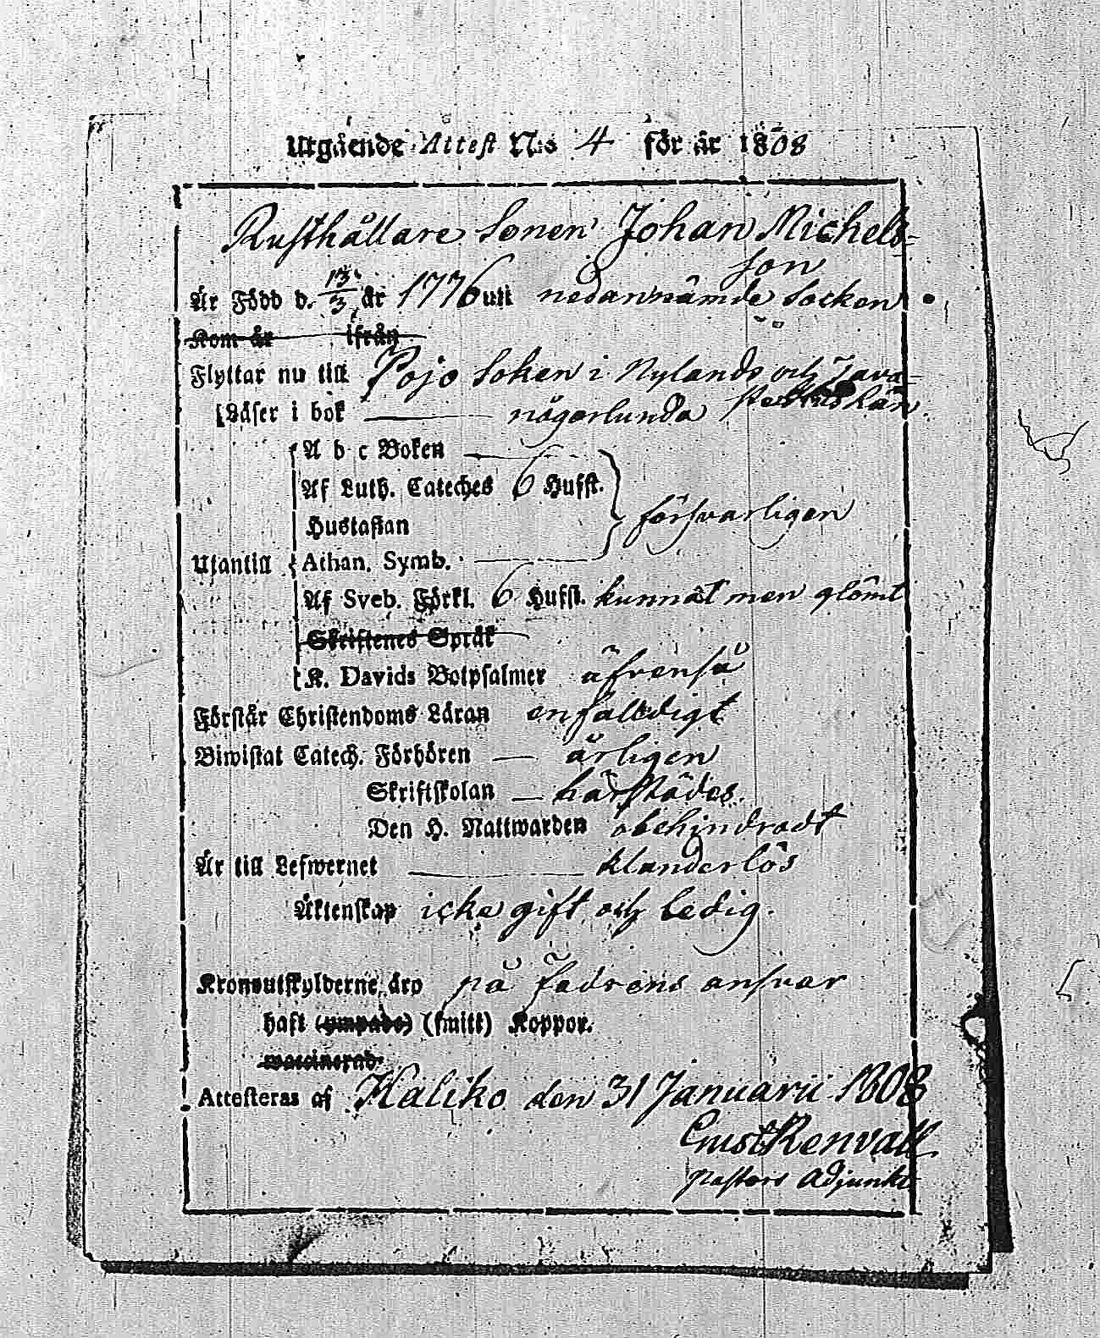 Utgående Attest N:o 4 för år 1808
Rusthållare Sonen Johan Michels=
son
Är Född d. 13/3 år 1776 uti nedannämde Socken
Kom år ifrån
Flyttar nu till Pojo Soken i Nylands och Tava=
stehus Län
Läser i bok nögorlunda
A b c Boken
Af Luth. Cateches 6 Hufst.
Hustaflan
försvarligen
Utantill Athan. Symb.
Af Sveb. Förkl. 6 Hufst. kunnat men glömt
Skriftenes Språk
K. Davids Botpsalmer äfvenså
Förstår Christendoms Läran enfalldigt
Biwistat Catech. Förhören årligen
Skriftskolan härstädes
Den H. Nattwarden obehindradt
Är till Lefwernet klanderlös
Äktenskap icke gift och ledig.
Kronoutskylderne äro på Fadrens ansvar
haft (ympade) (smitt) Koppor.
waccinerad
Attesteras af Haliko den 31 Januarii 1808
Ernst Renvall
Pastors Adjunkt